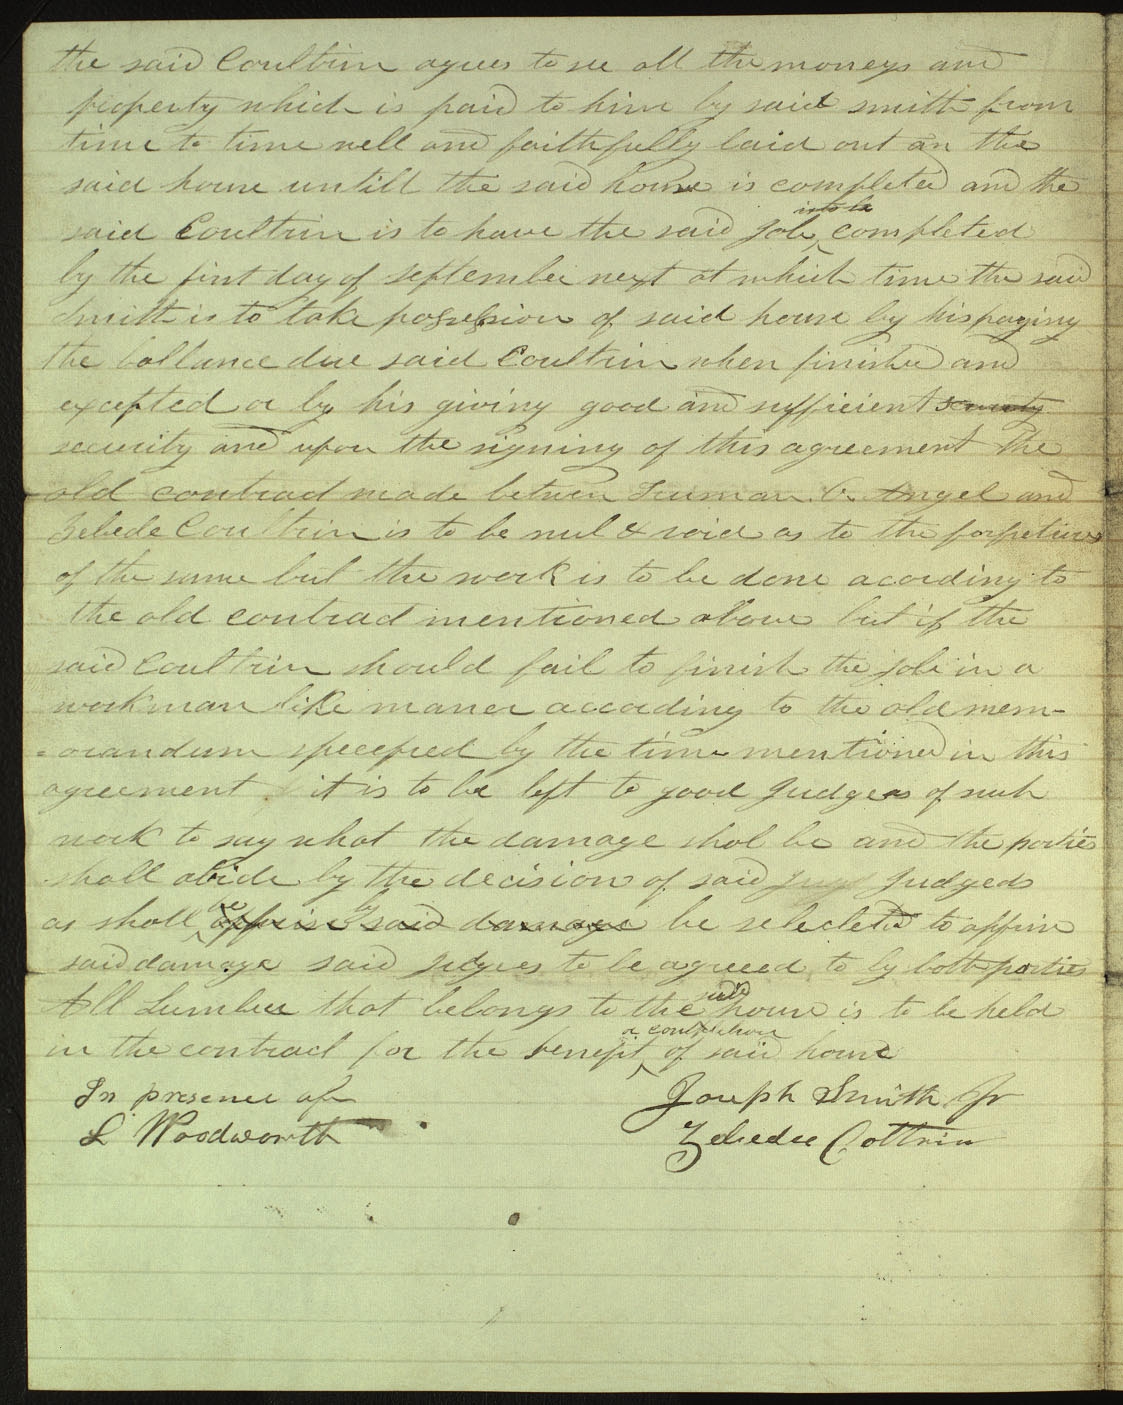 the said Coultrin agrees to see all the moneys and
property which is paid to him by said smith from
time to time well and faithfully laid out on the
said house untill the said house is completed and the
into be
said Coultrin is to have the said Job completed
by the first day of September next at which time the said
Smith is to take possession of said house by his paying
the ballance due said Coultrin when finished and
excepted or by his giving good and sufficient security
security and upon the signing of this agreement the
old contract made between Truman O. Angel and
Zebede Coultrin is to be nul & void as to the forfeture
of the same but the work is to be done acording to
the old contract mentioned above but if the
said Coultrin should fail to finish the job in a
workman like maner according to the old mem-
=orandum specefied by the time mentioned in this
agreement it is to be left to good Judges of such
work to say what the damage shal be and the parties
shall abide by the decision of said Judgeds
as shall be said damage be selected to affirm
said damage said Judges to be agreed to by both parties
said
All Lumber that belongs to the house is to be held
a contruction
in the contract for the benefit of said house
In presence of Joseph Smith Jr
L Woodworth Zebedee Coltrin